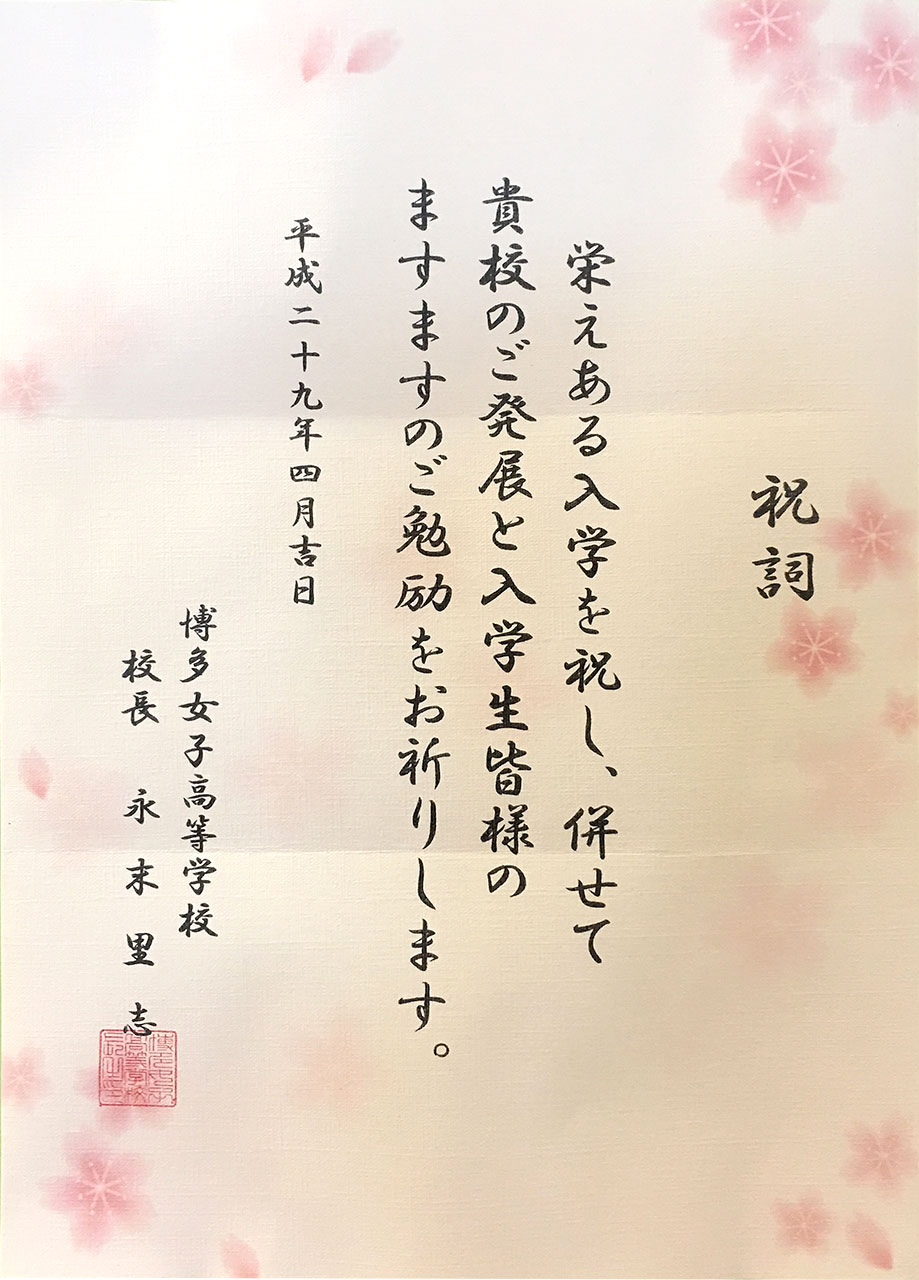 祝詞
栄えある入学を祝し、併せて
貴校のご発展と入学生皆様の
ますますのご勉励をお祈りします。
平成二十九年四月吉日
博多女子高等学校
校長 永末里志